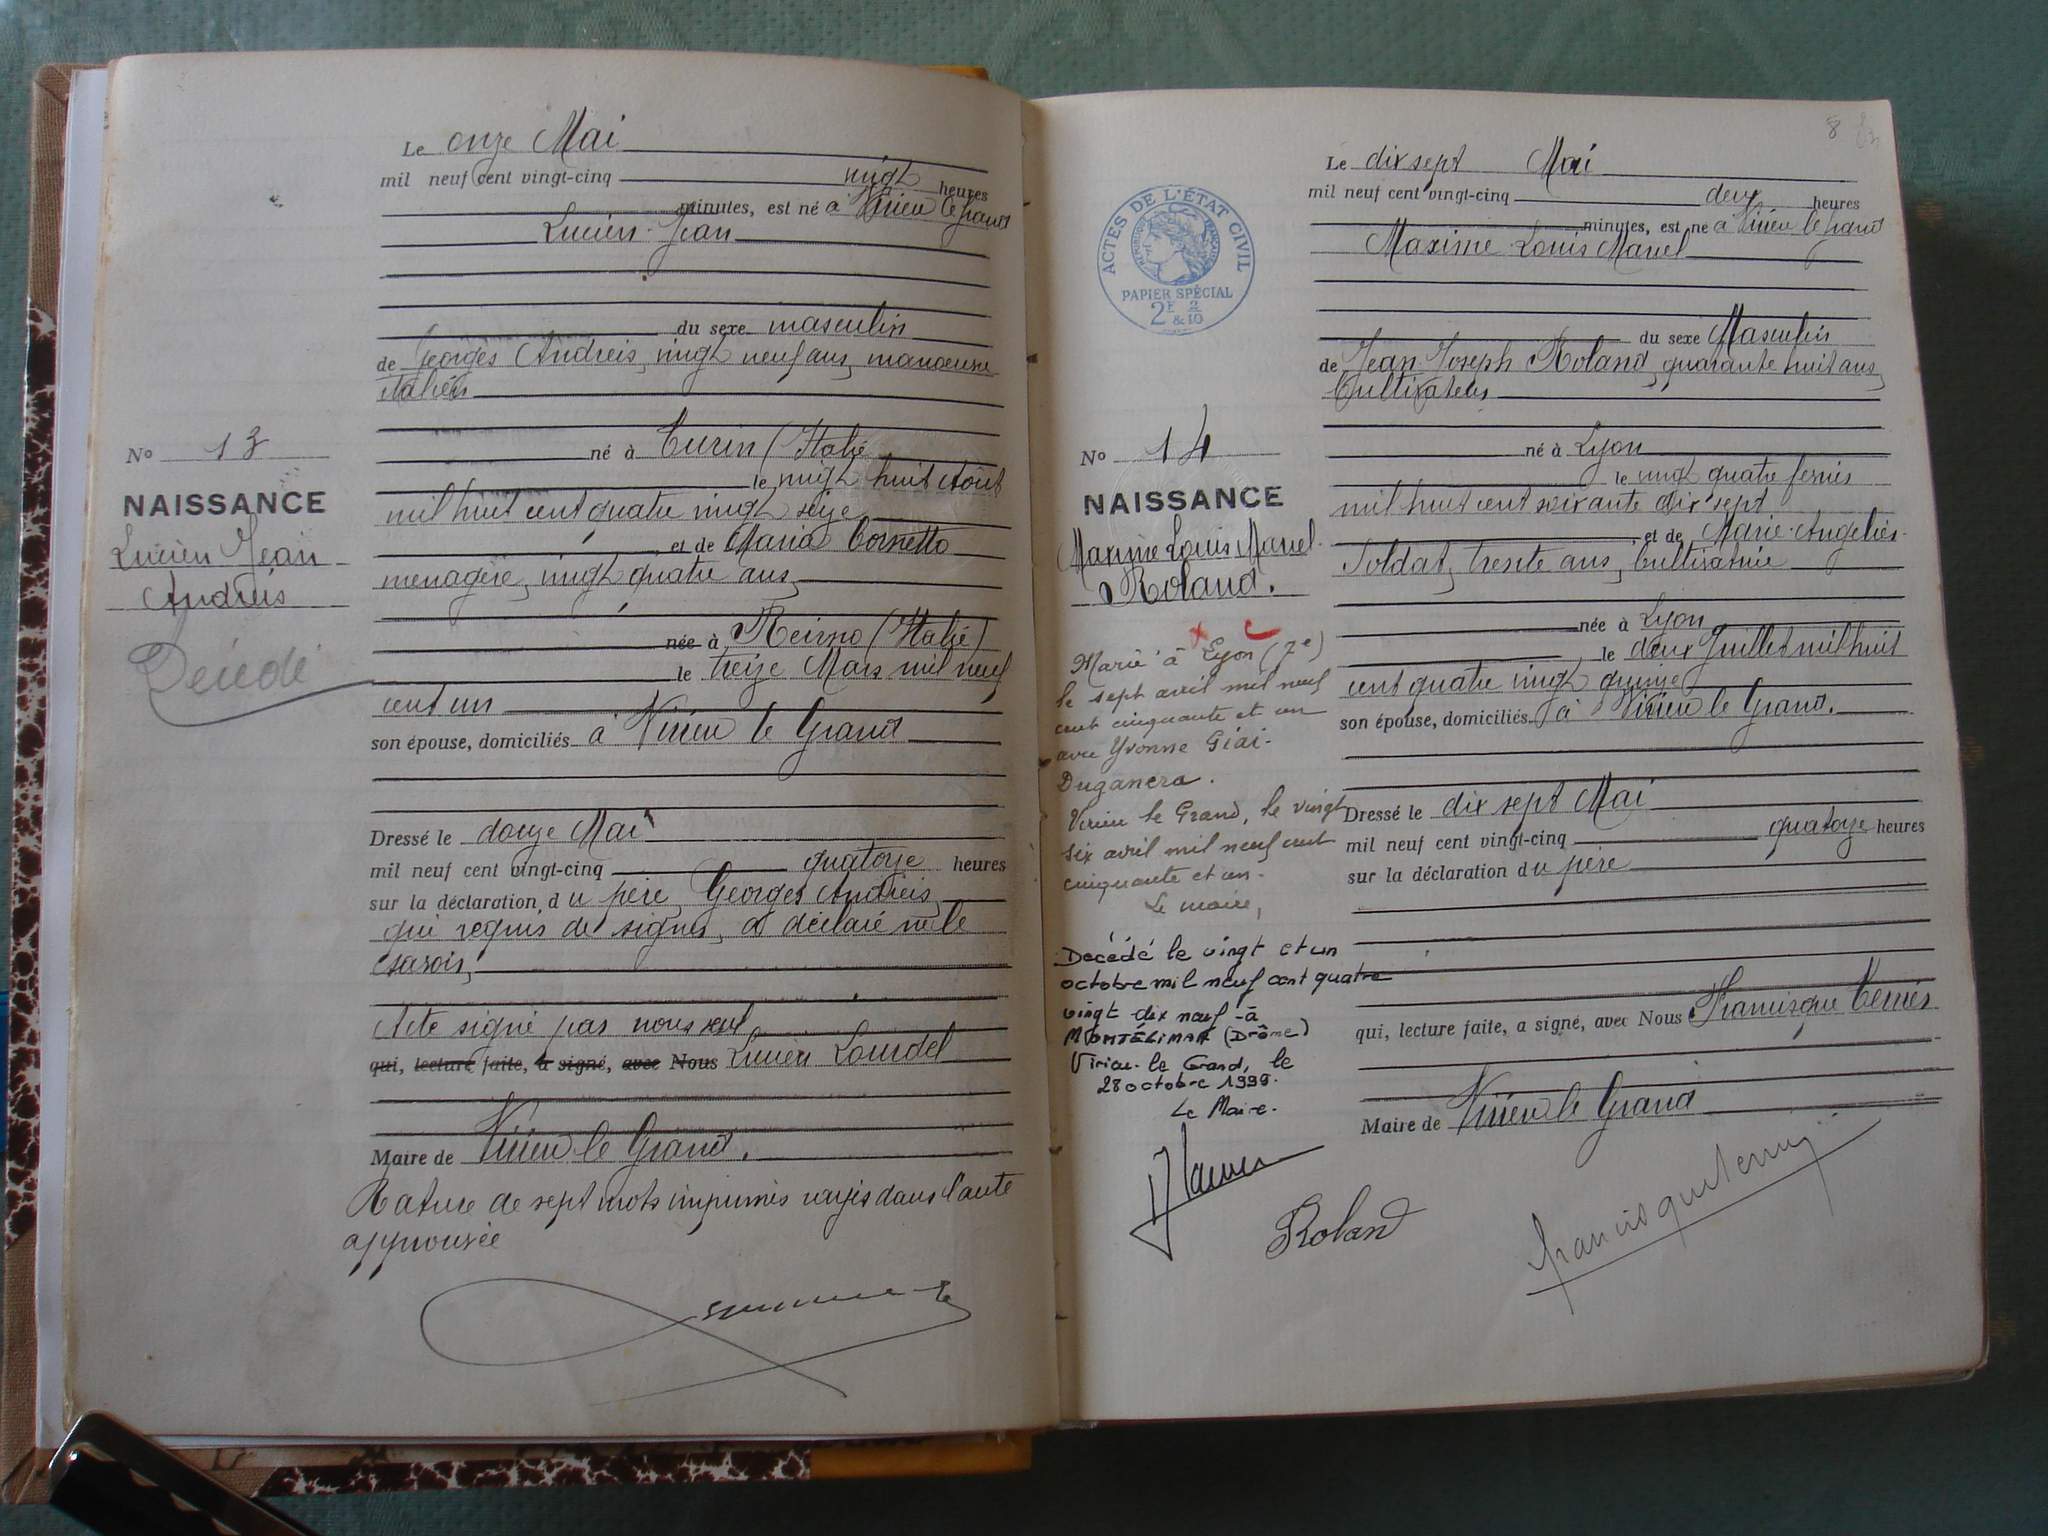 Le onze Mai
mil neuf cent vingt-cinq vingt heures
minutes, est né à Virieu le Grand
Lucien Jean
du sexe masculin
de Georges Andreis, vingt neuf ans, manoeuvre
italien
né à Turin (Italie
le vingt huit Août
mil huit cent quatre vingt seize
et de Maria Cornetto
ménagère, vingt quatre ans,
née à (Italie)
le treize Mars mil neuf
cent un
son épouse, domiciliés à Virieu le Grand
Dressé le douze Mai
mil neuf cent vingt-cinq quatorze heures
sur la déclaration du père, Georges Andreis,
qui requis de signer, a déclaré ne le
savoir,
Acte signé par nous seul
qui, lecture faite, a signé, avec Nous Lucien Lourdel
Maire de Virieu le Grand.
Rature de sept mots imprimés rayés dans l'acte
approuvée
No 13
NAISSANCE
Lucien Jean
Andreis
Décédé
8
Le dix sept Mai
mil neuf cent vingt-cinq deux heures
minutes, est né à Virieu le Grand
Maxime Louis Marcel
du sexe Masculin
de Jean Joseph Roland, quarante huit ans,
Cultivateur
né à Lyon
le vingt quatre février
mil huit cent soixante dix sept
et de Marie Angeline
Soldat, trente ans, Cultivatrice
née à Lyon
le deux Juillet mil huit
cent quatre vingt quinze
son épouse, domiciliés à Virieu le Grand.
Dressé le dix sept Mai
mil neuf cent vingt-cinq quatorze heures
sur la déclaration du père
qui, lecture faite, a signé, avec Nous Francisque
Maire de Virieu le Grand
ACTES DE L'ÉTAT CIVIL
RÉPUBLIQUE FRANÇAISE
PAPIER SPÉCIAL
2F & 2/10
No 14
NAISSANCE
Maxime Louis Marcel
Roland.
Marié à Lyon (7e)
le sept avril mil neuf
cent cinquante et un
avec Yvonne Giai-
Duganera.
Virieu le Grand, le vingt
six avril mil neuf cent
cinquante et un.
Le maire,
Décédé le vingt et un
octobre mil neuf cent quatre
vingt dix neuf à
MONTÉLIMAR (Drôme)
Virieu-le Grand, le
28 octobre 1999.
Le Maire.
Roland